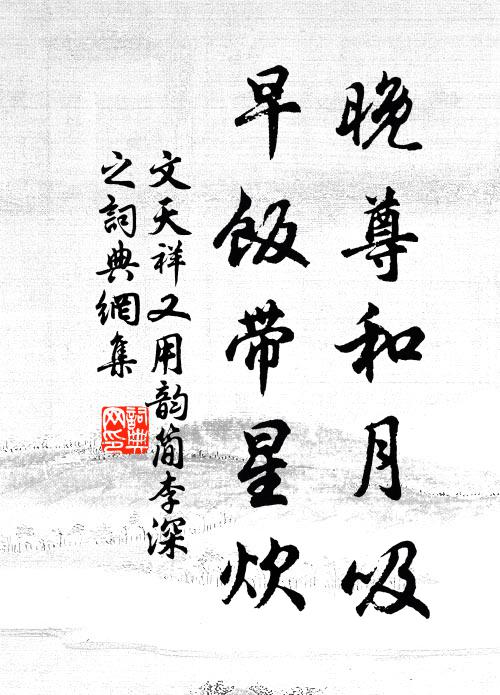 晚尊和月吸
早飯带星炊
文天祥又用韵简李深
之詞典網集
詞典網印